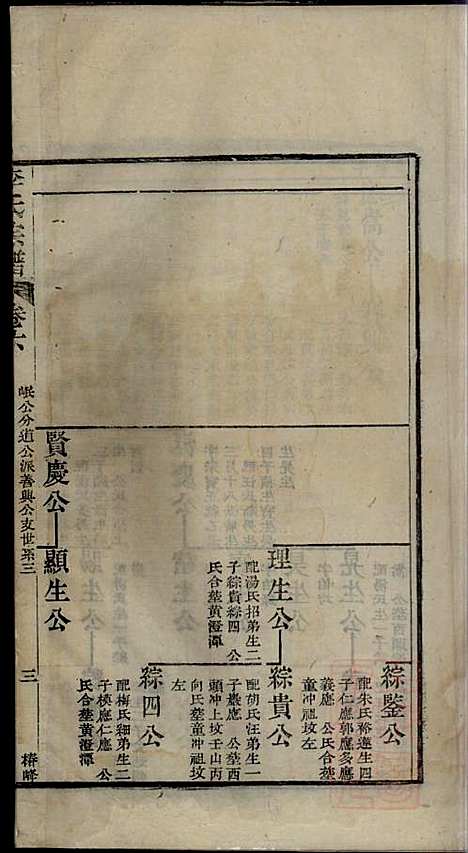 綜鑒公
配朱氏裕蓮生四
子仁應郭應多應
義應 公氏合葬
童冲祖坟左
理生公
配湯氏招弟生二
子綜貴綜四 公
氏合葬黃澄潭
綜貴公
配胡氏汪弟生一
子嚴應 公葬西
頭冲上坟壬山丙
向氏葬童冲祖坟
左
綜四公
配梅氏細弟生二
子横應仁應 公
氏合葬黃澄潭
賢慶公
顯生公
李氏宗譜
卷六
岷公分道公派善興公支世系三
三
椿峰